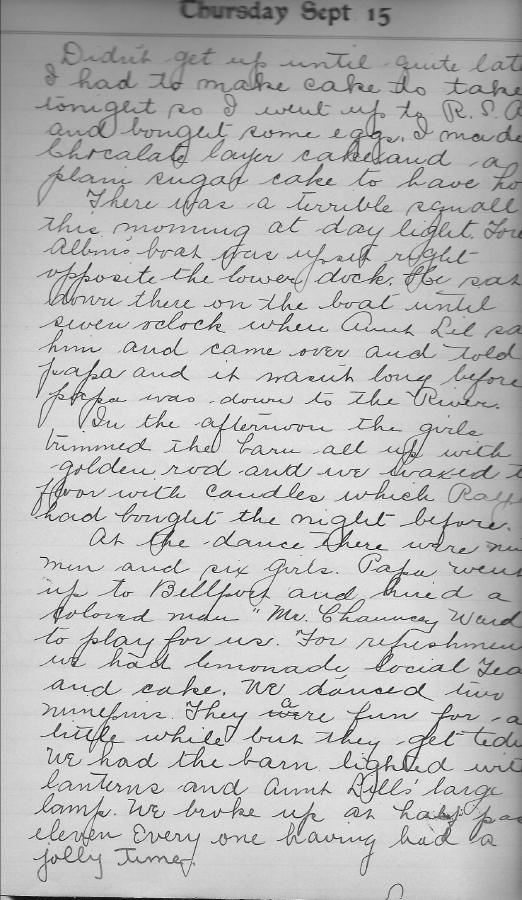 Thursday Sept 15
Didn't get up until quite late
I had to make cake to take
tonight so I went up to R. S. A
and bought some eggs. I made
Chocalate layer cake and a
plain sugar cake to have ho
There was a terrible squall
this morning at day light.
Albin's boat was upset right
opposite the lower dock. He sat
down there on the boat until
seven oclock when Aunt Lil sa
him and came over and told
papa and it wasn't long before
papa was down to the River.
In the afternoon the girls
trimmed the barn all up with
golden rod and we waxed t
floor with candles which Ray
had bought the night before.
At the dance there were
men and six girls. Papa went
up to Bellport and hired a
colored man "Mr. Chauncey Ward
to play for us. For refreshmen
we had lemonade, Social Tea
and cake. We danced two
They are fun for a
little while but they get tedi
We had the barn lighted wit
lanterns and Aunt Lill's large
lamp. We broke up at half pas
eleven Every one having had a
jolly time.